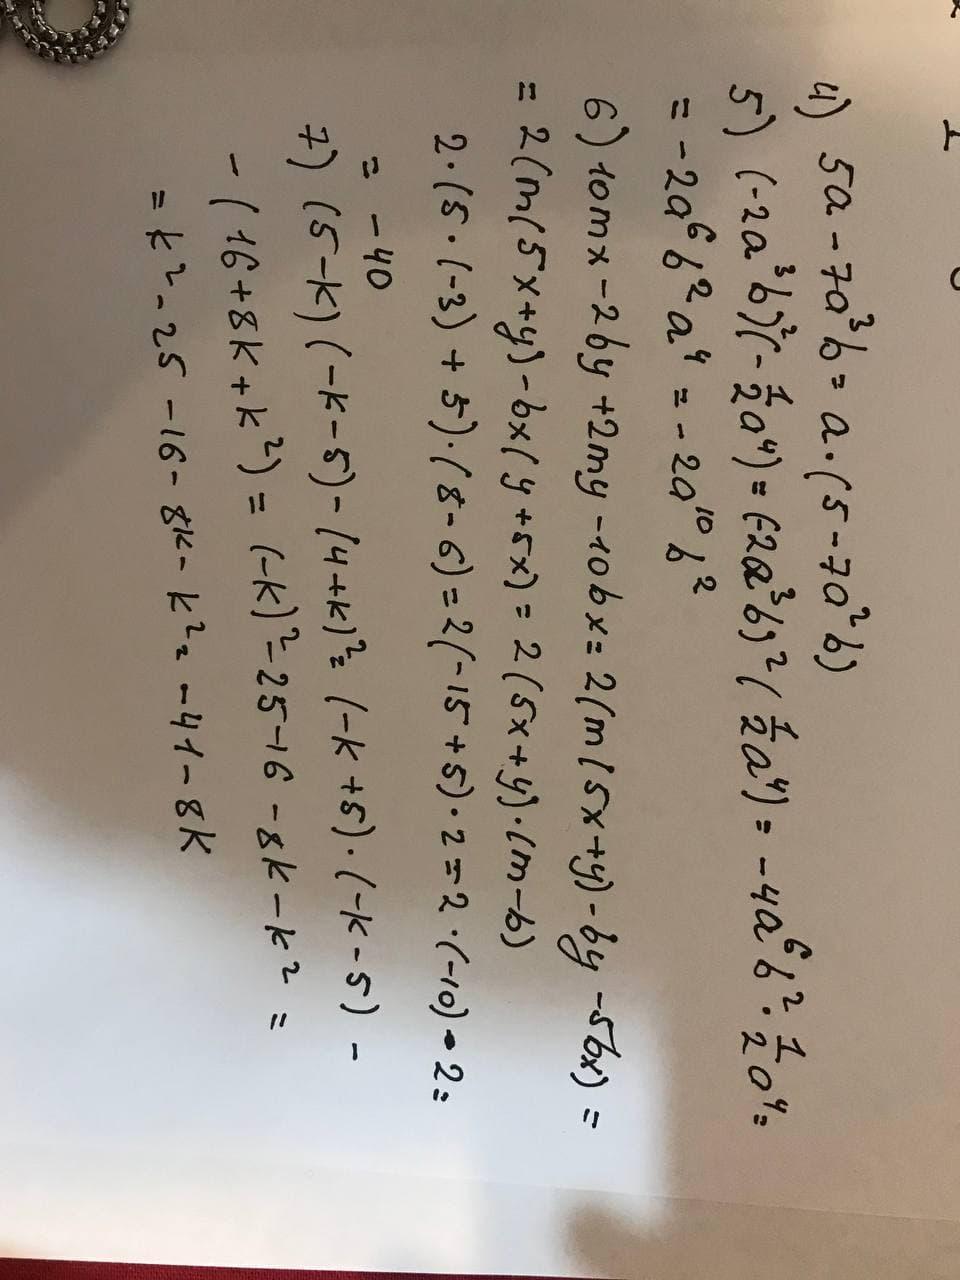 4) 5a - 7a³b = a · (5 - 7a²b)
5) (-2a³b)²(-1/2a⁴) = (-2a³b)²(1/2a⁴) = -4a⁶b² · 1/2a⁴ =
= -2a⁶b²a⁴ = -2a¹⁰b²
6) 10mx - 2by + 2my - 10bx = 2(m(5x+y) - by - 5bx) =
= 2(m(5x+y) - bx(y+5x) = 2(5x+y)·(m-b)
2·(5·(-3) + 5)·(8-6) = 2(-15+5)·2 = 2·(-10)·2 =
= -40
7) (5-k)(-k-5) - (4+k)² = (-k+5)·(-k-5) -
- (16+8k+k²) = (-k)² - 25 - 16 - 8k - k² =
= k² - 25 - 16 - 8k - k² = -41 - 8k